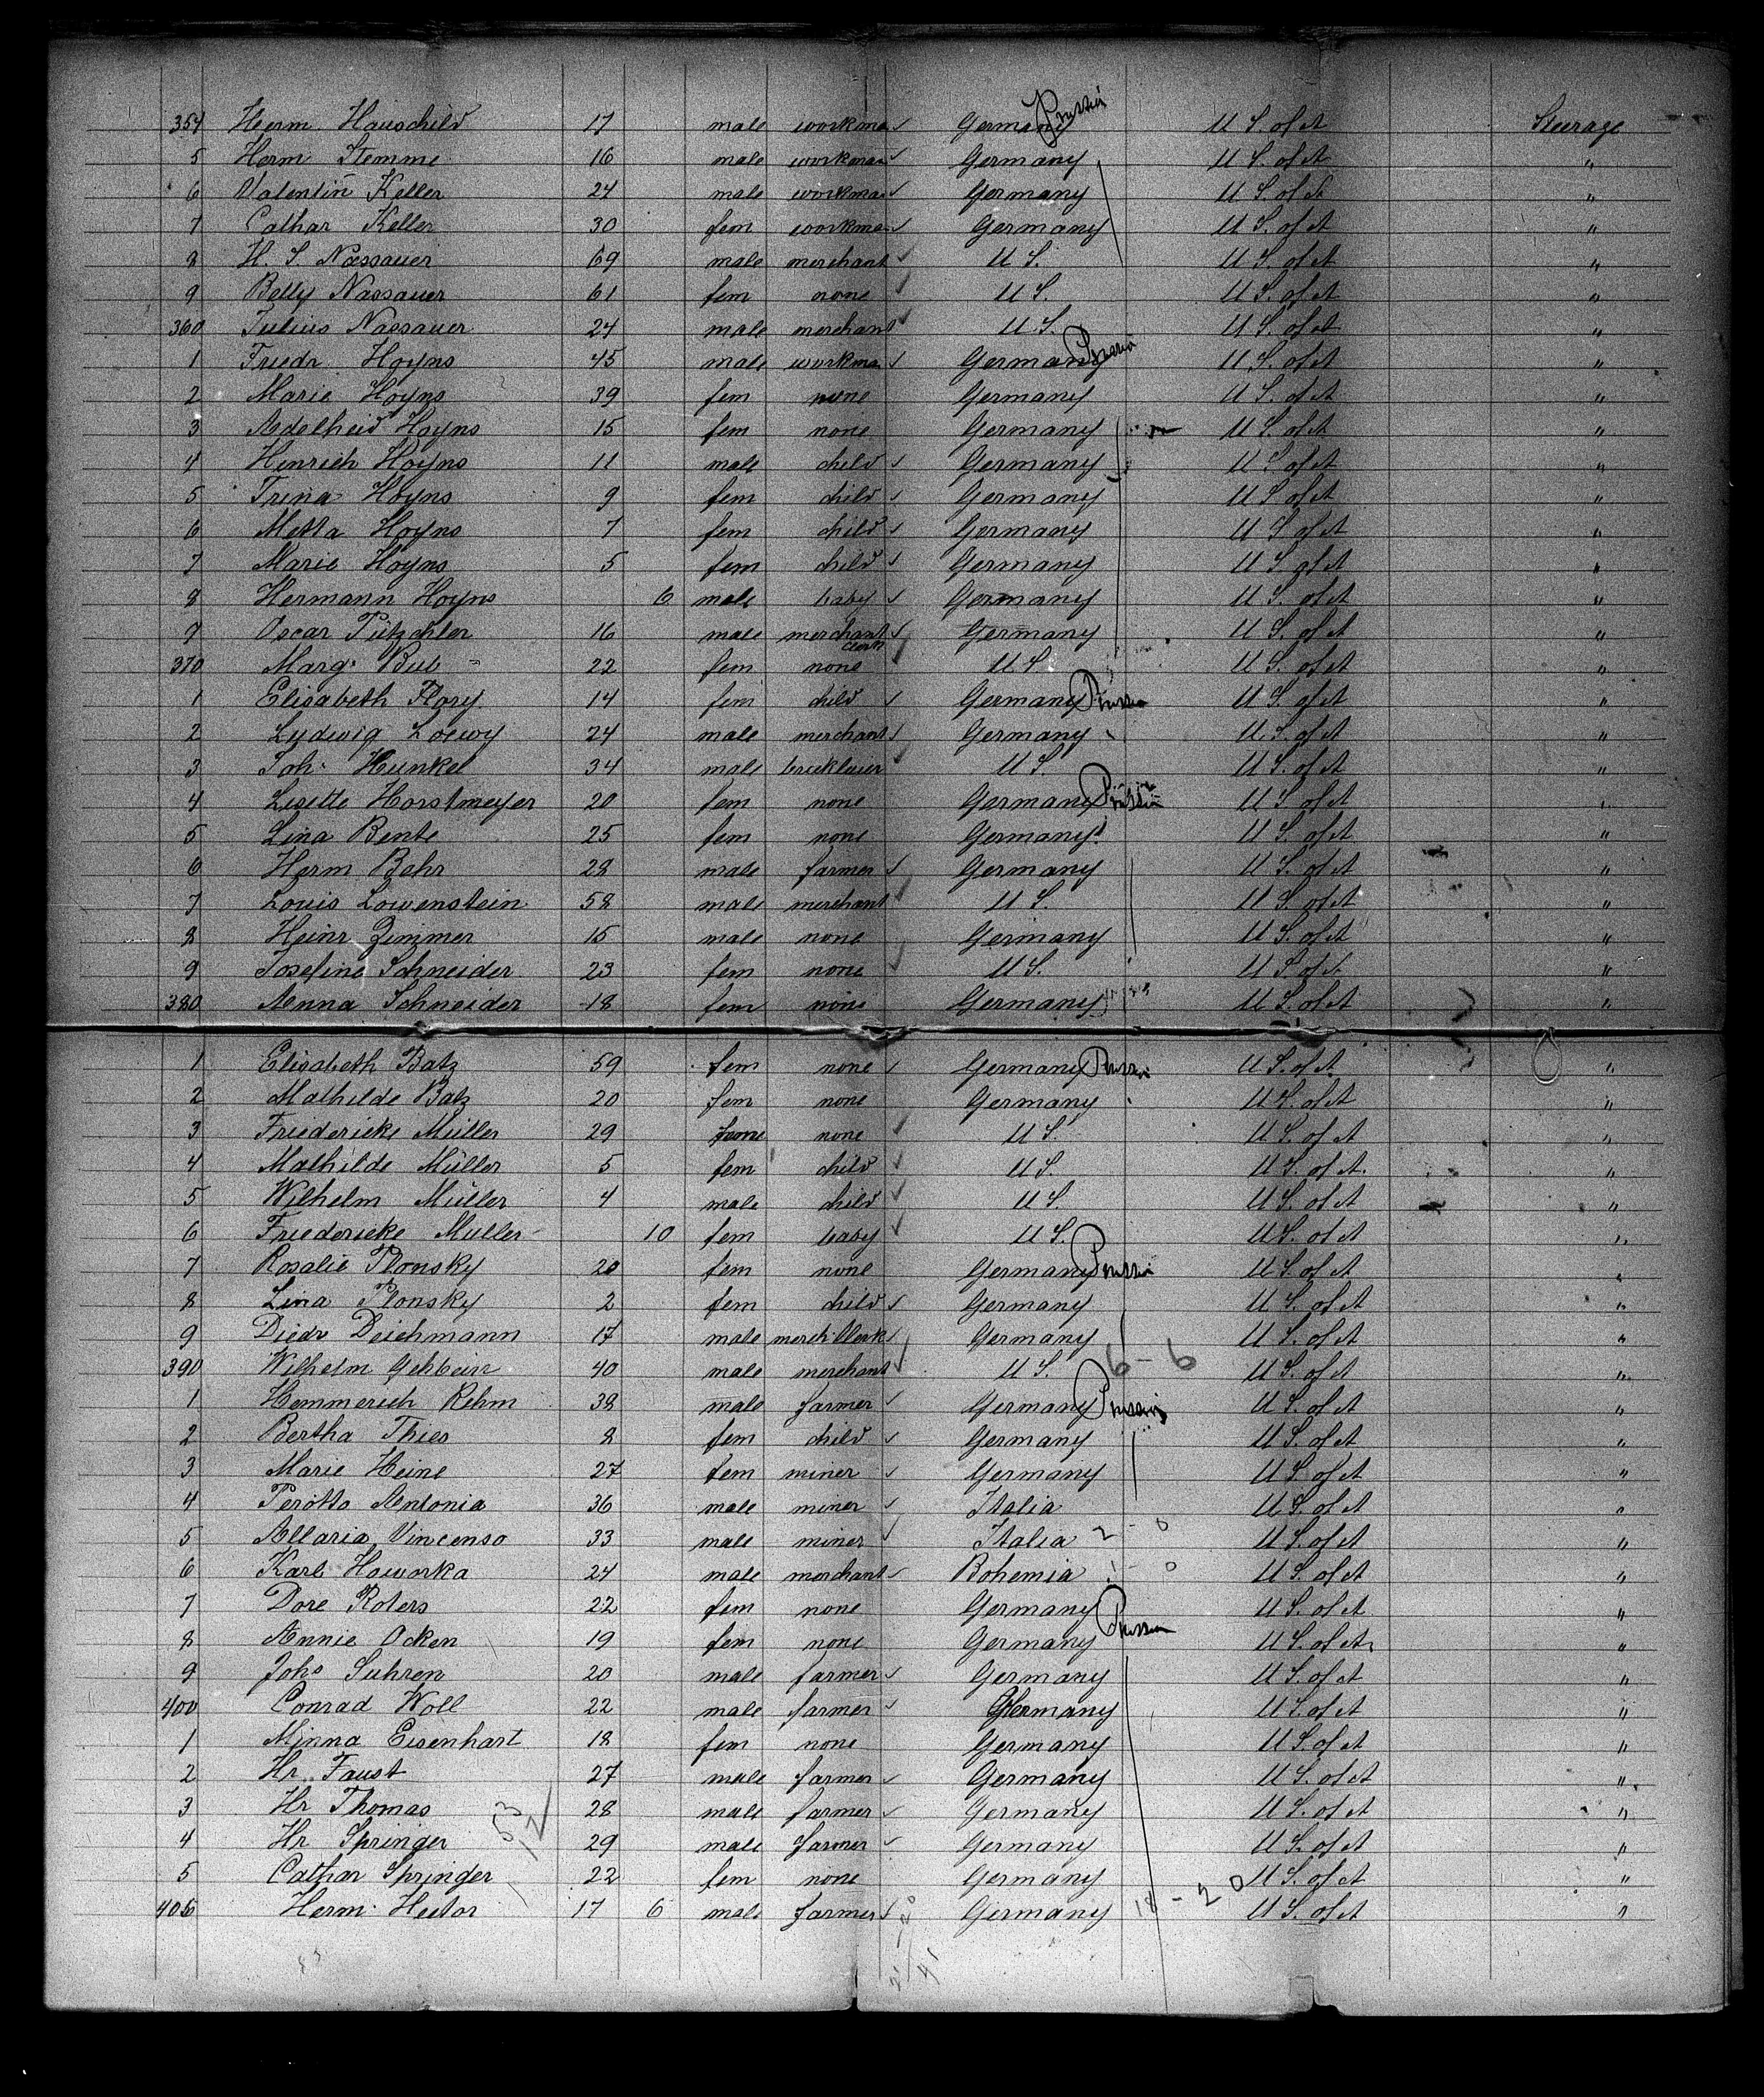 354 Herm. Hauschild 17 male workman Germany Prussia U S. of A Steerage
5 Herm Stemme 16 male workman Germany U S. of A "
6 Valentin Keller 24 male workman Germany U S. of A "
7 Cathar Keller 30 fem workman Germany U S. of A "
8 H. S. Nassauer 69 male merchant U S. U S. of A "
9 Belly Nassauer 61 fem none U S. U S. of A "
360 Julius Nassauer 24 male merchant U.S. U S. of A "
1 Friedr. Hoyns 45 male workman Germany Prussia U S. of A "
2 Marie Hoyns 39 fem none Germany U S. of A "
3 Adelheid Hoyns 15 fem none Germany U S. of A "
4 Hinrich Hoyns 11 male child Germany U S. of A "
5 Trina Hoyns 9 fem child Germany U S. of A "
6 Metta Hoyns 7 fem child Germany U S. of A "
7 Marie Hoyns 5 fem child Germany U S. of A "
8 Hermann Hoyns 6 male baby Germany U S. of A "
9 Oscar 16 male merchant clerk Germany U S. of A "
370 Marg. Bub 22 fem none U S. U S. of A "
1 Elisabeth Flory 14 fem child Germany Prussia U S. of A "
2 Ludwig Loewy 24 male merchant Germany U S. of A "
3 Joh. Hunkel 34 male bricklaier U S. U S. of A "
4 Lisette Horstmeyer 20 fem none Germany Prussia U S. of A "
5 Lina Bente 25 fem none Germany U S. of A "
6 Herm Behr 28 male farmer Germany U S. of A "
7 Louis Lowenstein 58 male merchant U S. U S. of A "
8 Heinr Zimmer 15 male none Germany U S. of A "
9 Josefine Schneider 23 fem none U S. U S. of A "
380 Anna Schneider 18 fem none Germany U S. of A "
1 Elisabeth Batz 59 fem none Germany Prussia U S. of A "
2 Mathilde Batz 20 fem none Germany U S. of A "
3 Friedericke Müller 29 feme none U S. U S. of A "
4 Mathilde Müller 5 fem child U S. U S. of A. "
5 Wilhelm Müller 4 male child U S. U S. of A "
6 Friedericke Muller 10 fem baby U S. U S. of A "
7 Rosalie Plonsky 20 fem none Germany Prussia U S. of A "
8 Lina Plonsky 2 fem child Germany U S. of A "
9 Diedr Deichmann 17 male merch Clerk Germany U S. of A "
390 Wilhelm Gehbein 40 male merchant U S. 6 - 6 U S. of A "
1 Hemmerich Rehm 38 male farmer Germany Prussia U S. of A "
2 Bertha Thies 8 fem child Germany U S. of A "
3 Marie Heine 27 fem miner Germany U S. of A "
4 Perotto Antonia 36 male miner Italia U S. of A "
5 Allaria Vincenso 33 male miner Italia 2 - 0 U S. of A "
6 Karl Haworka 24 male merchant Bohemia 1 - 0 U S. of A "
7 Dore Roters 22 fem none Germany Prussia U S. of A "
8 Annie Ocken 19 fem none Germany U S. of A "
9 Johs Suhren 20 male farmer Germany U S. of A "
400 Conrad Woll 22 male farmer Germany U S. of A "
1 Minna Eisenhart 18 fem none Germany U S. of A "
2 Hr. Faust 27 male farmer Germany U S. of A "
3 Hr Thomas 28 male farmer Germany U S. of A "
4 Hr Springer 29 male farmer Germany U S. of A "
5 Cathar Springer 22 fem none Germany U S. of A "
406 Herm. Hector 17 6 male farmer Germany 18 - 20 U S. of A "